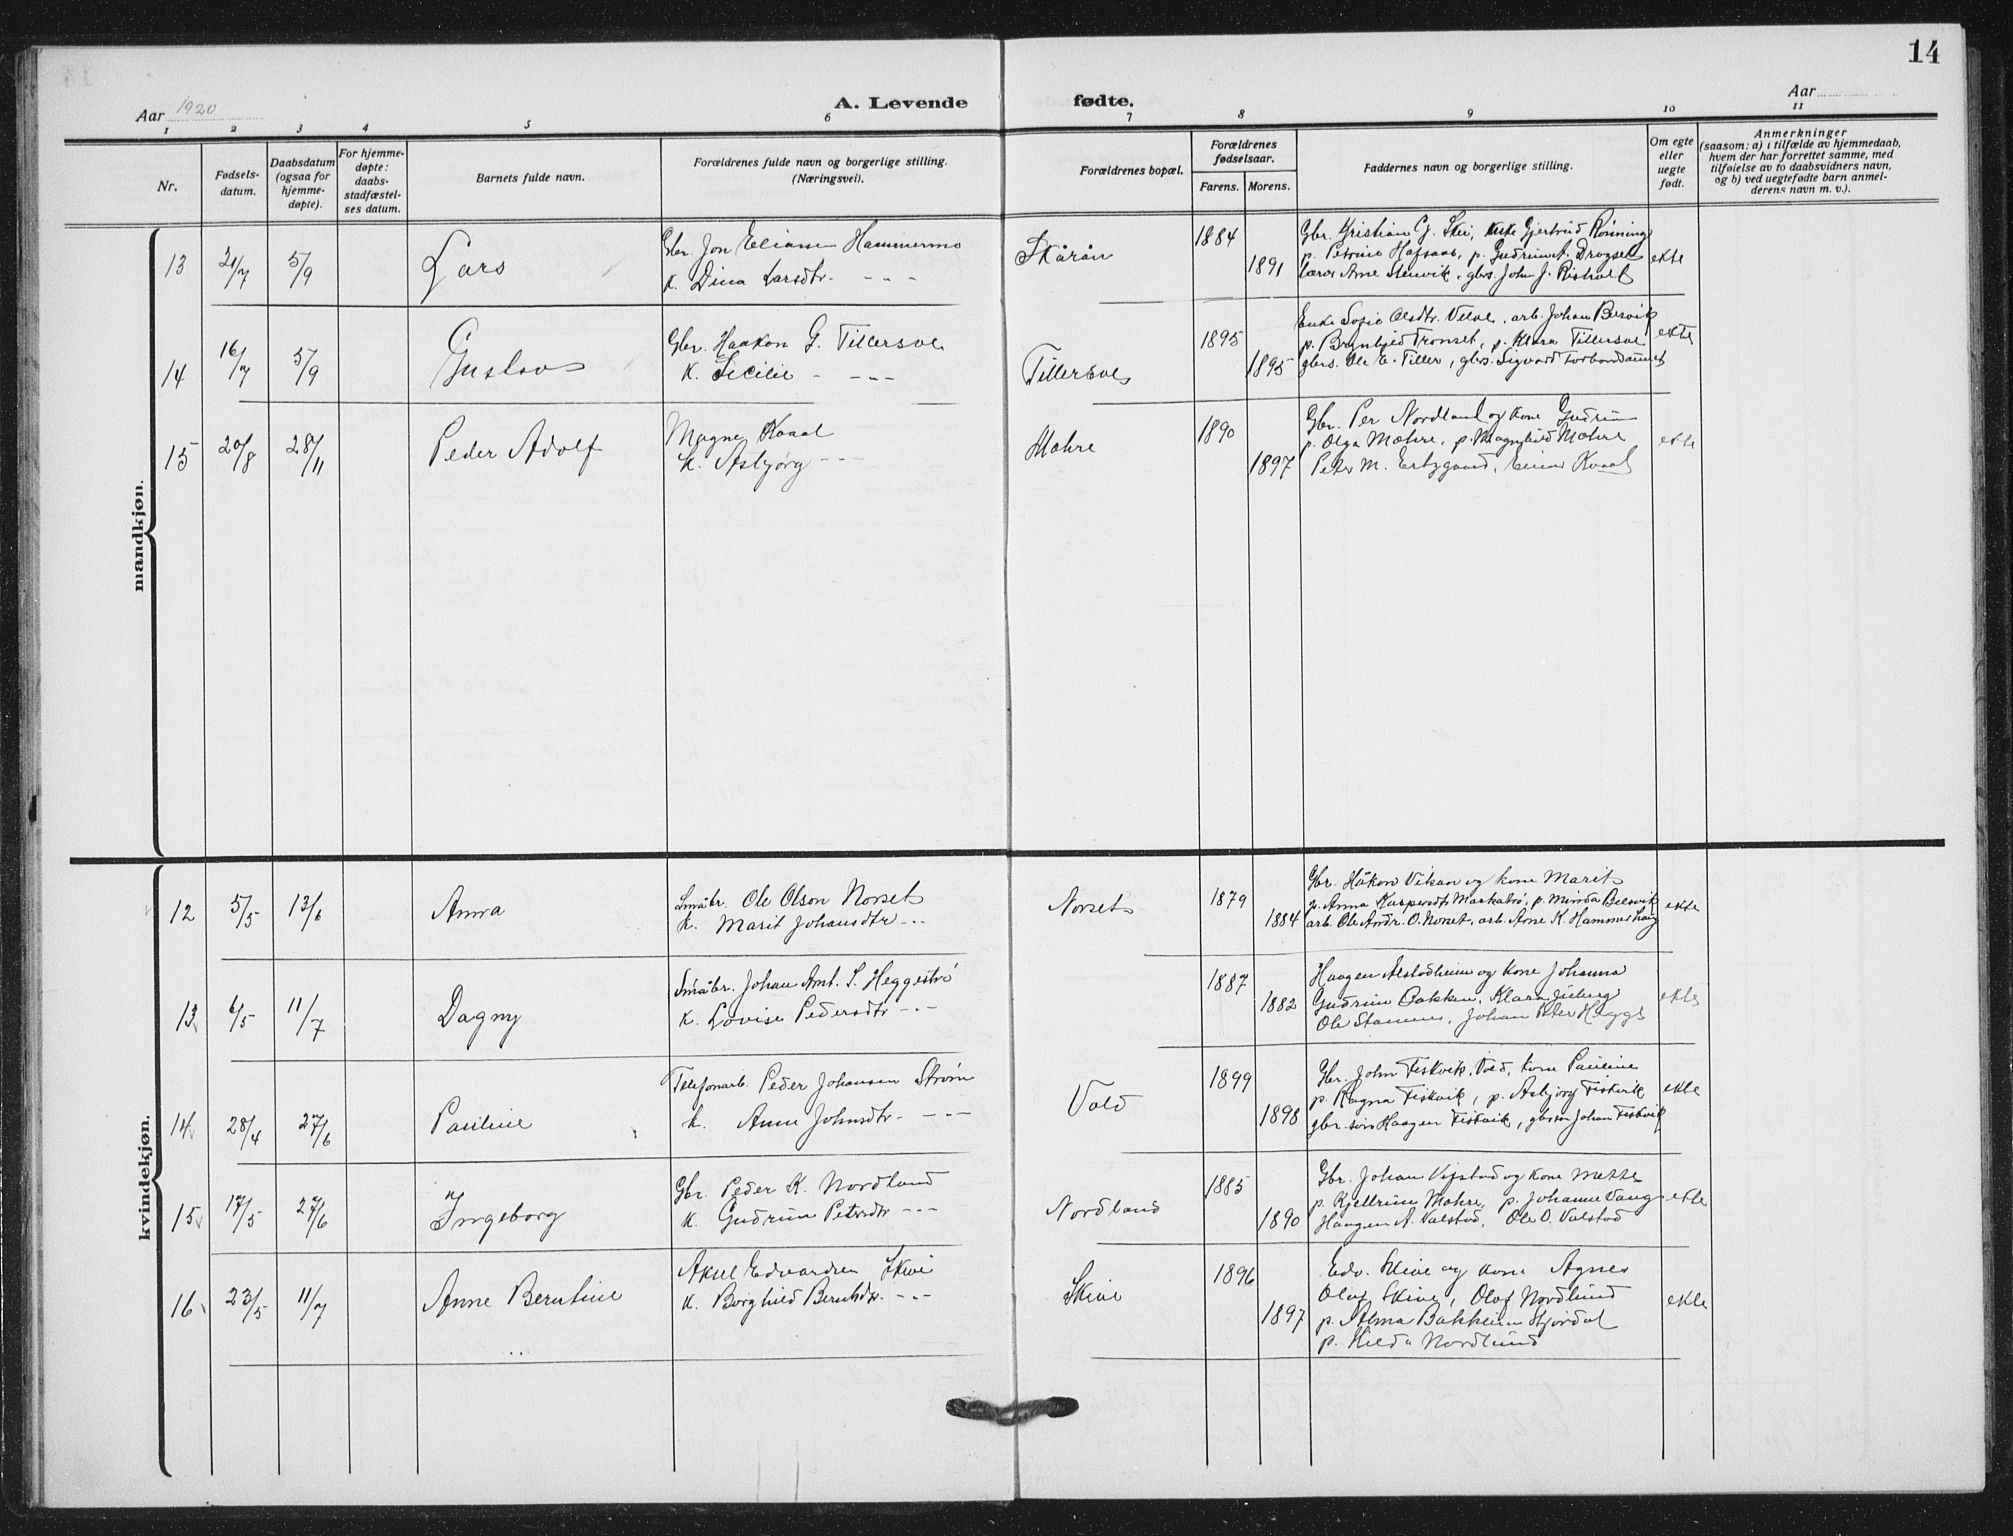 14
Aar 1920
A. Levende fødte.
Aar
1 2 3 4 5 6 7 8 9 10 11
Nr.
Fødsels-
datum.
Daabsdatum
(ogsaa for
hjemme-
døpte).
For hjemme-
døpte:
daabs-
stadfæstel-
ses datum.
Barnets fulde navn.
Forældrenes fulde navn og borgerlige stilling.
(Næringsvei).
Forældrenes bopæl.
Forældrenes
fødselsaar.
Farens. Morens.
Faddernes navn og borgerlige stilling.
Om egte
eller
uegte
født.
Anmerkninger
(saasom: a) i tilfælde av hjemmedaab,
hvem der har forrettet samme, med
tilføielse av to daabsvidners navn,
og b) ved uegtefødte barn anmel-
derens navn m. v.).
mandkjøn.
13 21/7 5/9 Lars
Gbr. Jon Eliassen Hammermo
K. Dina Larsdtr. - - -
Skårån
1884
1891
Gbr. Kristian G. Skei, Enke Gjertrud Rönning
p. Petrine Hafsaas, p. Gudrun A. Drogset
Lærer Arne Stenvik, gbrs. John J. Risholt
ekte
14 16/7 5/9 Gustav
Gbr. Haakon G. Tillersve
K. Secilie - - - -
Tillersve
1895
1895
Enke Sofie Olsdtr. Velve, arb. Johan Bersvik
p. Brynhild Tronset, p. Klara Tillersve
gbrs. Ole E. Tiller, gbrs. Sigvard
ekte
15 20/8 28/11 Peder Adolf
Magne Kvaal
K. Asbjørg - - -
Mæhre
1890
1897
Gbr. Per Nordland og kone Gudrun
p. Olga Mæhre, p. Magnhild Mæhre
Peter M. Erbygaard, Einar Kvaal
ekte
kvindekjøn.
12 5/5 13/6 Anna
Småbr. Ole Olson Norset
K. Marit Johansdtr - - -
Norset
1879
1884
Gbr. Håkon Vikan og kone Marit
p. Anna Kaspersdtr Markabö, p. Minda Bersvik
arb. Ole Andr. O. Norset, arb. Arne K. Hammerhaug
ekte
13 6/5 11/7 Dagmy
Småbr. Johan Arnt. S. Heggeströ
K. Lovise Pedersdtr - - -
1887
1882
Haagen Alstadheim og kone Johanna
Gudrun Bakken, Klara
Ole Stamnes, Johan Peter
ekte
14 28/4 27/6 Pauline
Telefonarb. Peder Johansen Strøm
K. Anne Johnsdtr - - - -
Vold
1899
1898
Gbr. John Fiskvik, Vold, kone Pauline
p. Ragna Fiskvik, p. Asbjörg Fiskvik
gbr. sön Haagen Fiskvik, gbrsön Johan Fiskvik
ekte
15 17/5 27/6 Ingeborg
Gbr. Peder K. Nordland
K. Gudrun Petersdtr - - -
Nordland
1885
1890
Gbr. Johan Vifstad og kone Mette
p. Kjellrun Mæhre, p. Johanne Vang
Haagen A. Valstad, Ole O. Valstad
ekte
16 23/5 11/7 Anne Berntine
Aksel Edvardsen Skive
K. Borghild Berntsdtr. - - -
Skive
1896
1897
Edv. Skive og kone Agnes
Olaf Skive, Olaf Nordlund
p. Alma Bakheim Stjördal
p. Hilda Nordlund
ekte